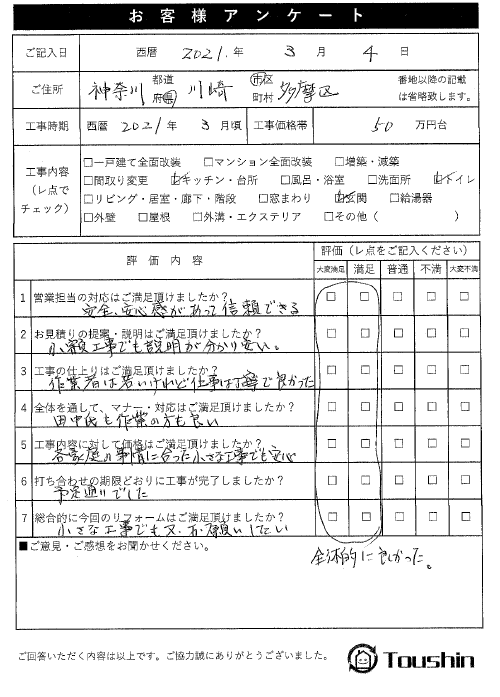 お客様アンケート
ご記入日 西暦 2021.年 3 月 4 日
ご住所 神奈川 都道府県 川崎 市区町村 多摩区 番地以降の記載は省略致します。
工事時期 西暦 2021年 3月頃 工事価格帯 50 万円台
工事内容(レ点でチェック)
□一戸建て全面改装 □マンション全面改装 □増築・減築
□間取り変更 ☑キッチン・台所 □風呂・浴室 □洗面所 ☑トイレ
□リビング・居室・廊下・階段 □窓まわり ☑玄関 □給湯器
□外壁 □屋根 □外溝・エクステリア □その他( )
評価内容 評価(レ点をご記入ください)
大変満足 満足 普通 不満 大変不満
1 営業担当の対応はご満足頂けましたか? □ □ □ □ □
安全、安心感があって信頼できる
2 お見積りの提案・説明はご満足頂けましたか? □ □ □ □ □
小額工事でも説明が分かり安い。
3 工事の仕上りはご満足頂けましたか? □ □ □ □ □
作業者は若いけれど仕事は丁寧で良かった
4 全体を通して、マナー・対応はご満足頂けましたか? □ □ □ □ □
田中氏も作業の方も良い
5 工事内容に対して価格はご満足頂けましたか? □ □ □ □ □
各家庭の事情に合った小さな工事でも安心
6 打ち合わせの期限どおりに工事が完了しましたか? □ □ □ □ □
予定通りでした
7 総合的に今回のリフォームはご満足頂けましたか? □ □ □ □ □
小さな工事でも又、お願いしたい
■ご意見・ご感想をお聞かせください。
全体的に良かった。
ご回答いただく内容は以上です。ご協力誠にありがとうございました。
Toushin